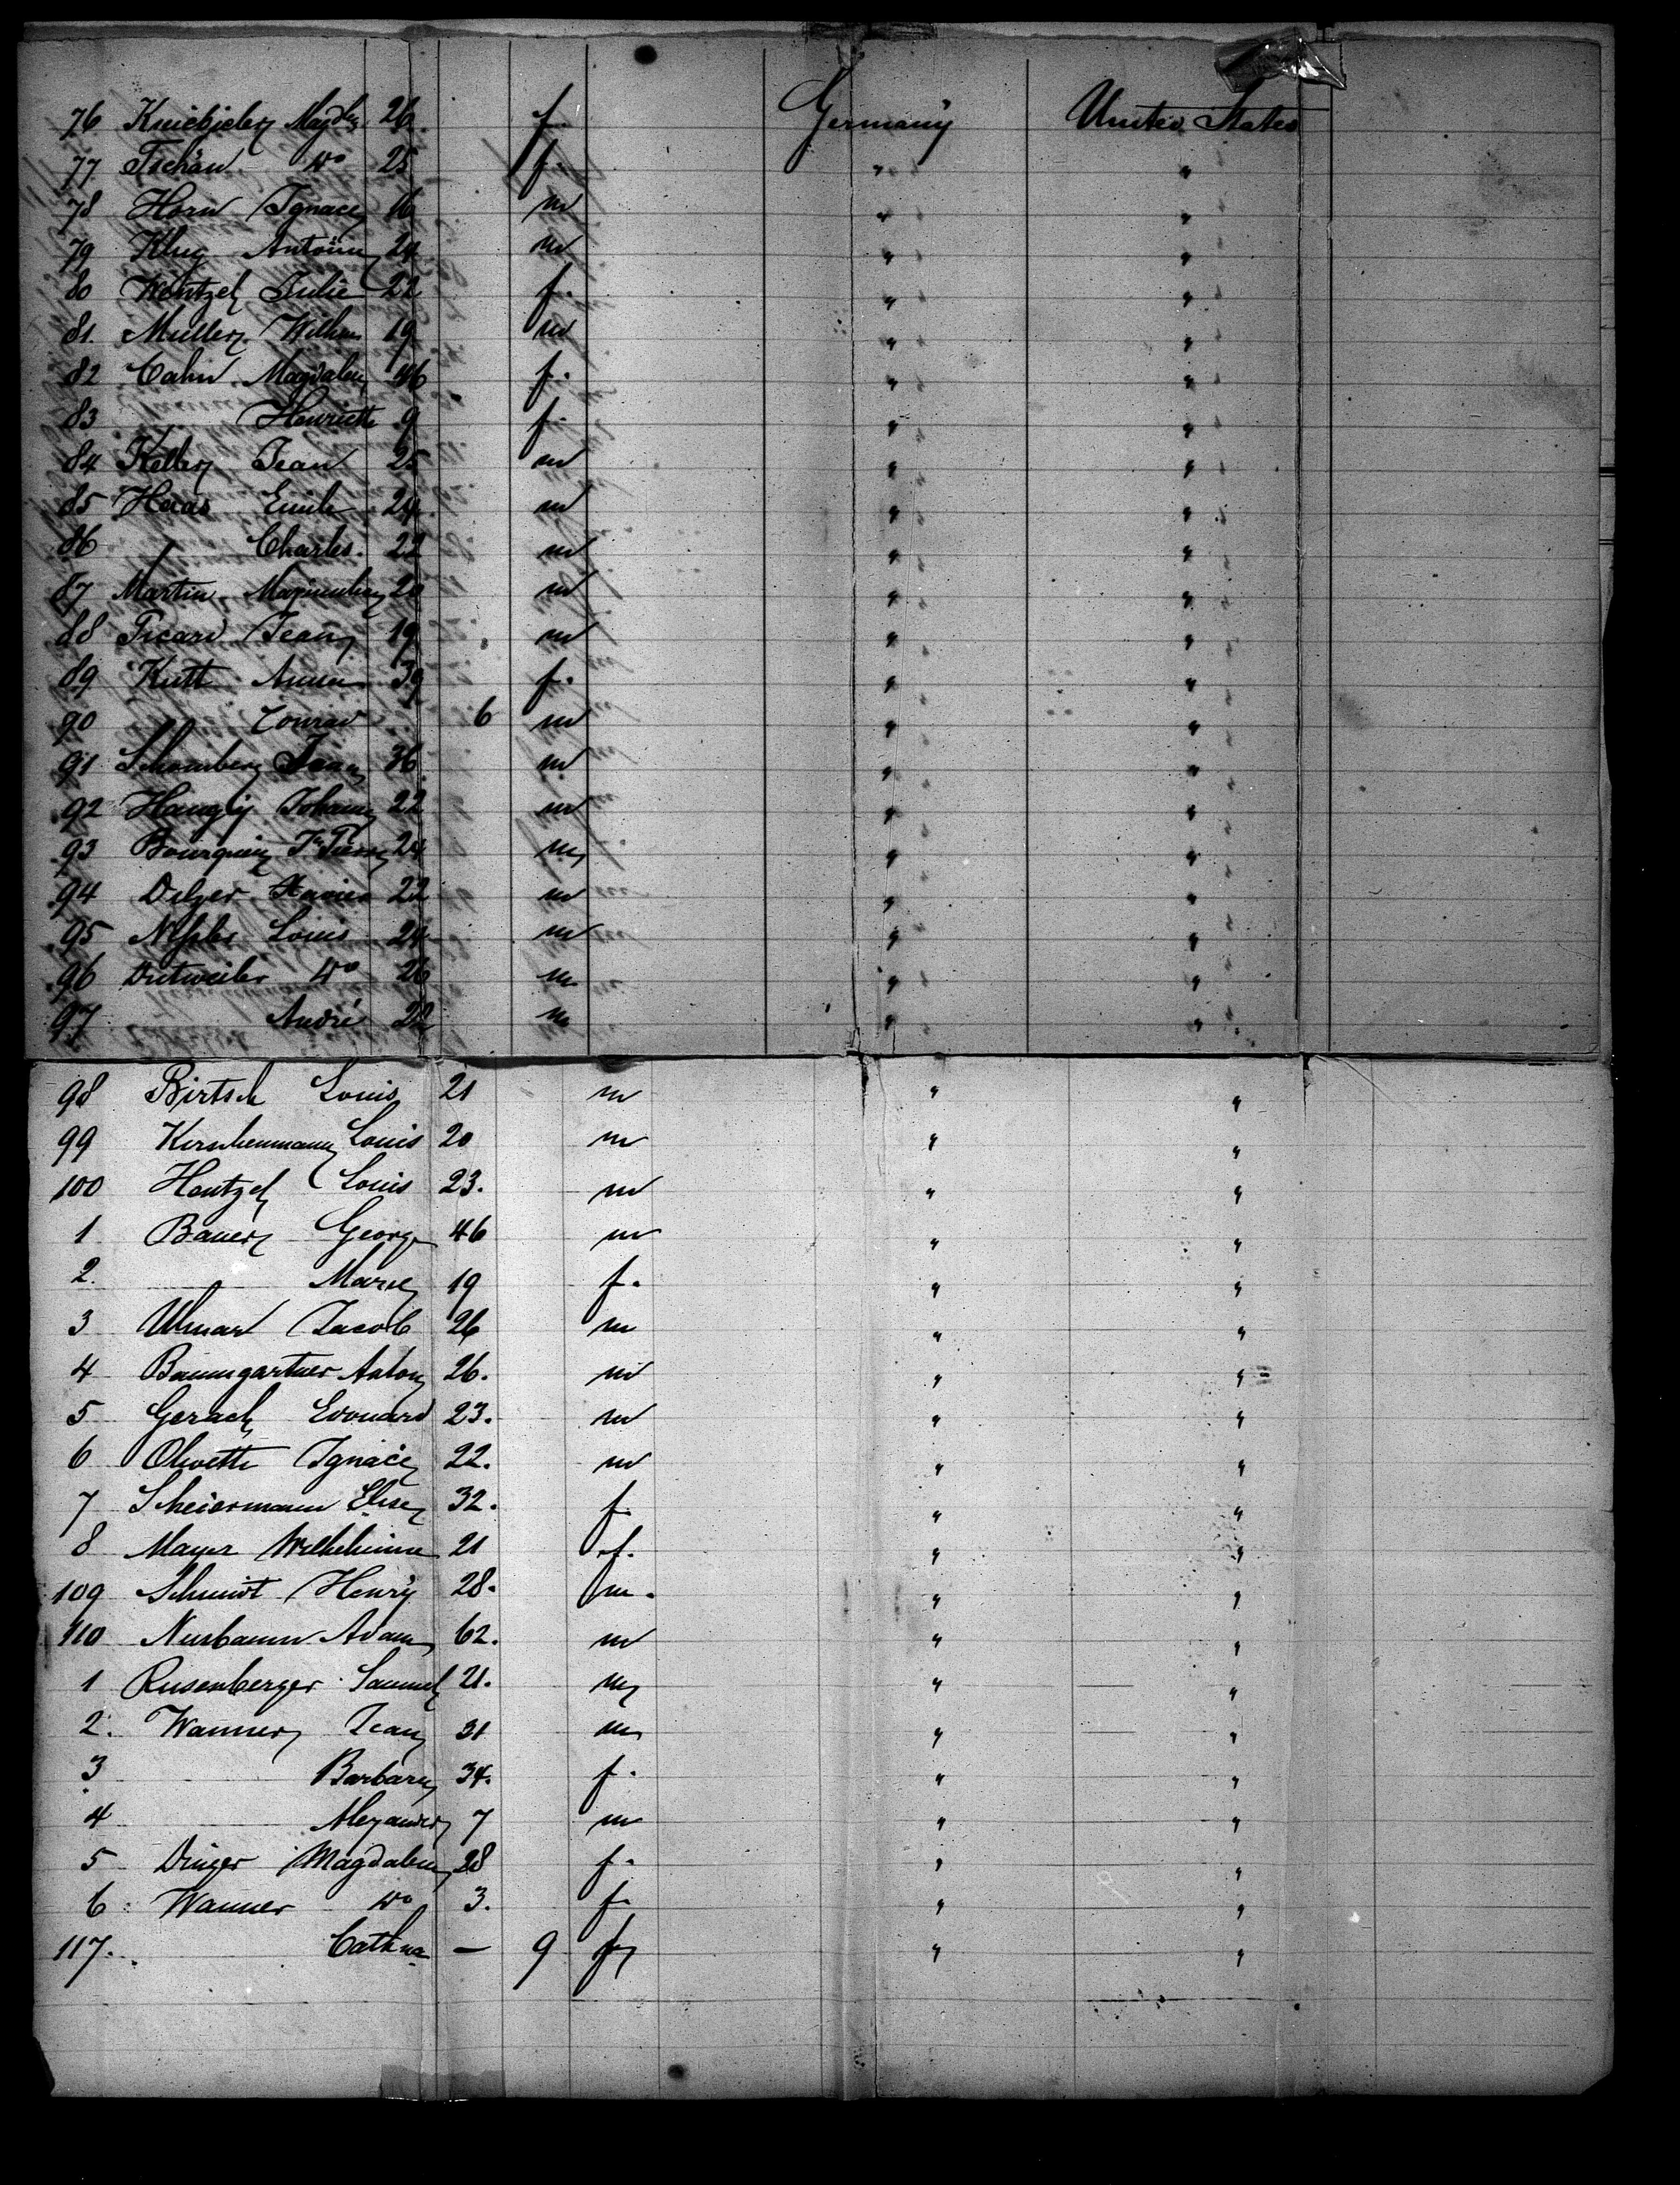 76 Magda 26. f. Germany United States
77 Tschan do 25 f. " "
78 Horn Ignace 16 m " "
79 Klug Antoine 24 m " "
80 Wentzel Julie 22 f. " "
81. Muller Wilhem 19 m " "
82 Cahn Magdalen 46 f. " "
83 Henriette 9 f. " "
84 Keller Jean 25 m " "
85 Haas Emile 24. m " "
86 " Charles. 22 m " "
87 Martin 20 m " "
88 Picard Jean 19 m " "
89 Kutt Anna 39 f. " "
90 Conrad 6 m " "
91 Schomberg 36. m " "
92 Haugly Johann 22 m " "
93 Bourquin Jn Pierre 24 m " "
94 Delzer Xavier 22 m " "
95 Louis 24 m " "
96 Dutweiler do 26 m " "
97 André 22 m " "
98 Birtsch Louis 21 m " "
99 Kirschenmann Louis 20 m " "
100 Hentzel Louis 23. m " "
1 Bauer George 46 m " "
2. Marie 19 f. " "
3 Jacob 26 m " "
4 Baumgartner Anton 26. m " "
5 Gerach Edouard 23. m " "
6 Olivette Ignace 22. m " "
7 Scheiermann Elise 32. f. " "
8 Mayer Wilhelmine 21 f. " "
109 Schmidt Henry 28. m. " "
110 Nusbaum Adam 62. m " "
1 Rusenberger Samuel 21. m " "
2. Wanner Jean 31 m " "
3 Barbara 34. f. " "
4 Alexander 7 m " "
5 Dinger Magdalen 28 f. " "
6 Wanner do 3. f. " "
117. Cathna — 9 f " "